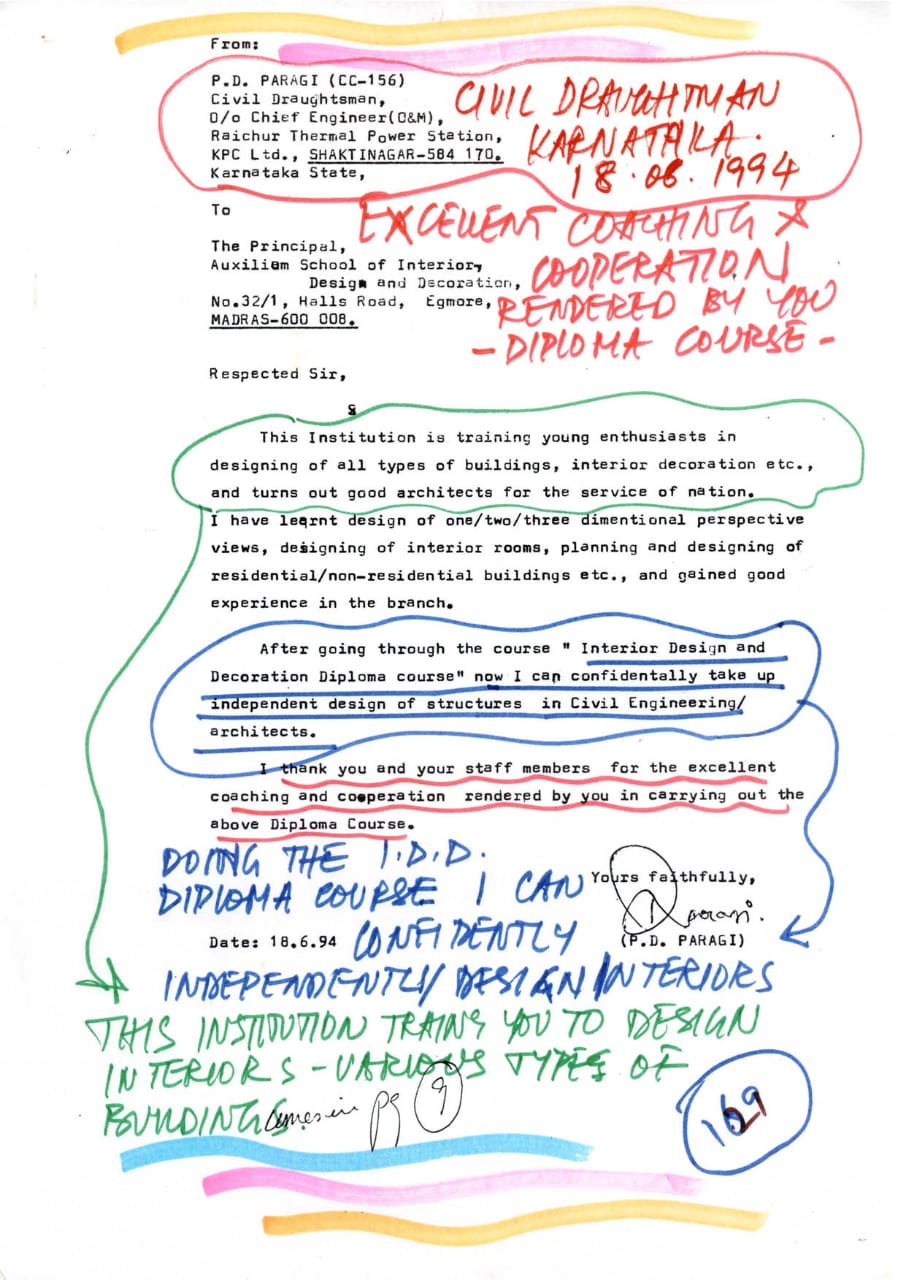 From:
P.D. PARAGI (CC-156)
Civil Draughtsman,
O/o Chief Engineer(O&M),
Raichur Thermal Power Station,
KPC Ltd., SHAKTINAGAR-584 170.
Karnataka State,
CIVIL DRAUGHTMAN
KARNATAKA.
18.06.1994
To
The Principal,
Auxiliam School of Interior,
Design and Decoration,
No.32/1, Halls Road, Egmore,
MADRAS-600 008.
EXCELLENT COACHING &
COOPERATION
RENDERED BY YOU
- DIPLOMA COURSE -
Respected Sir,
8
This Institution is training young enthusiasts in
designing of all types of buildings, interior decoration etc.,
and turns out good architects for the service of nation.
I have learnt design of one/two/three dimentional perspective
views, designing of interior rooms, planning and designing of
residential/non-residential buildings etc., and gained good
experience in the branch.
After going through the course " Interior Design and
Decoration Diploma course" now I can confidentally take up
independent design of structures in Civil Engineering/
architects.
I thank you and your staff members for the excellent
coaching and cooperation rendered by you in carrying out the
above Diploma Course.
Yours faithfully,
Paragi.
(P.D. PARAGI)
Date: 18.6.94
DOING THE I.D.D.
DIPLOMA COURSE I CAN
CONFIDENTLY
INDEPENDENTLY DESIGN INTERIORS
THIS INSTITUTION TRAINS YOU TO DESIGN
INTERIORS - VARIOUS TYPES OF
BUILDINGS.
pg 9
169